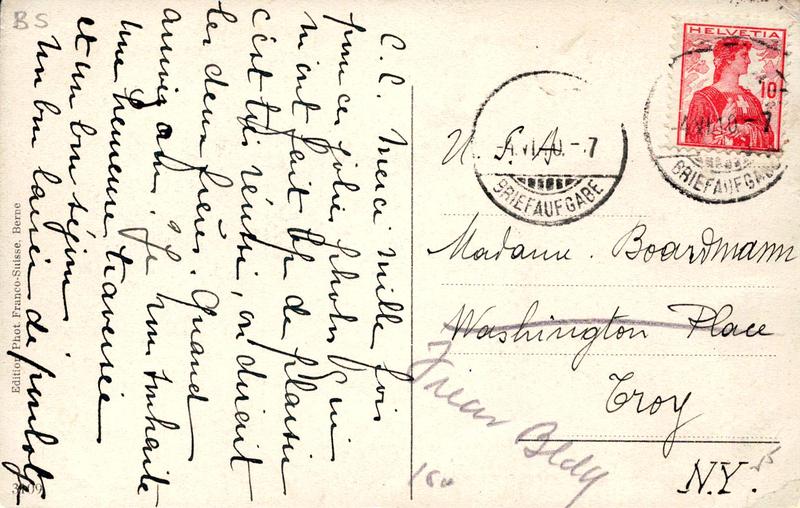 BS
C. C. Merci mille fois
pour ces jolies photos qui
m'ont fait de plaisir
c'est très réussi, on dirait
les deux frères. Quand
arrivez Je vous souhaite
une heureuse traversée
et un bon séjour
Un bon baiser de
Edition Phot. Franco-Suisse, Berne
3109
HELVETIA
10
BRIEFAUFGABE
BRIEFAUFGABE
U. S. A.
Madame Boardmann
Washington Place
Troy
N.Y.
Frear Bldg